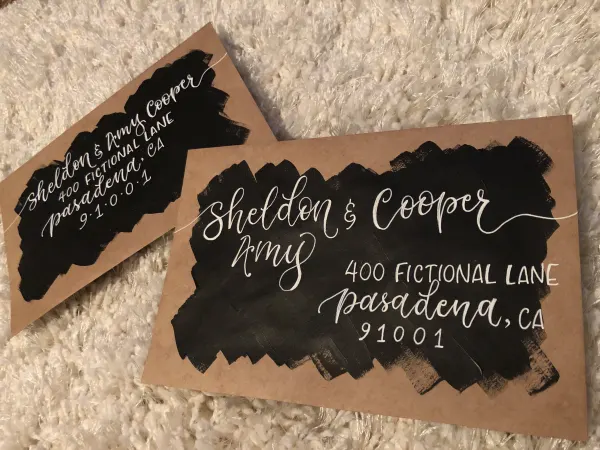 Sheldon & Amy Cooper
400 FICTIONAL LANE
pasadena, CA
9·1·0·0·1
Sheldon & Cooper
Amy
400 FICTIONAL LANE
pasadena, CA
91001